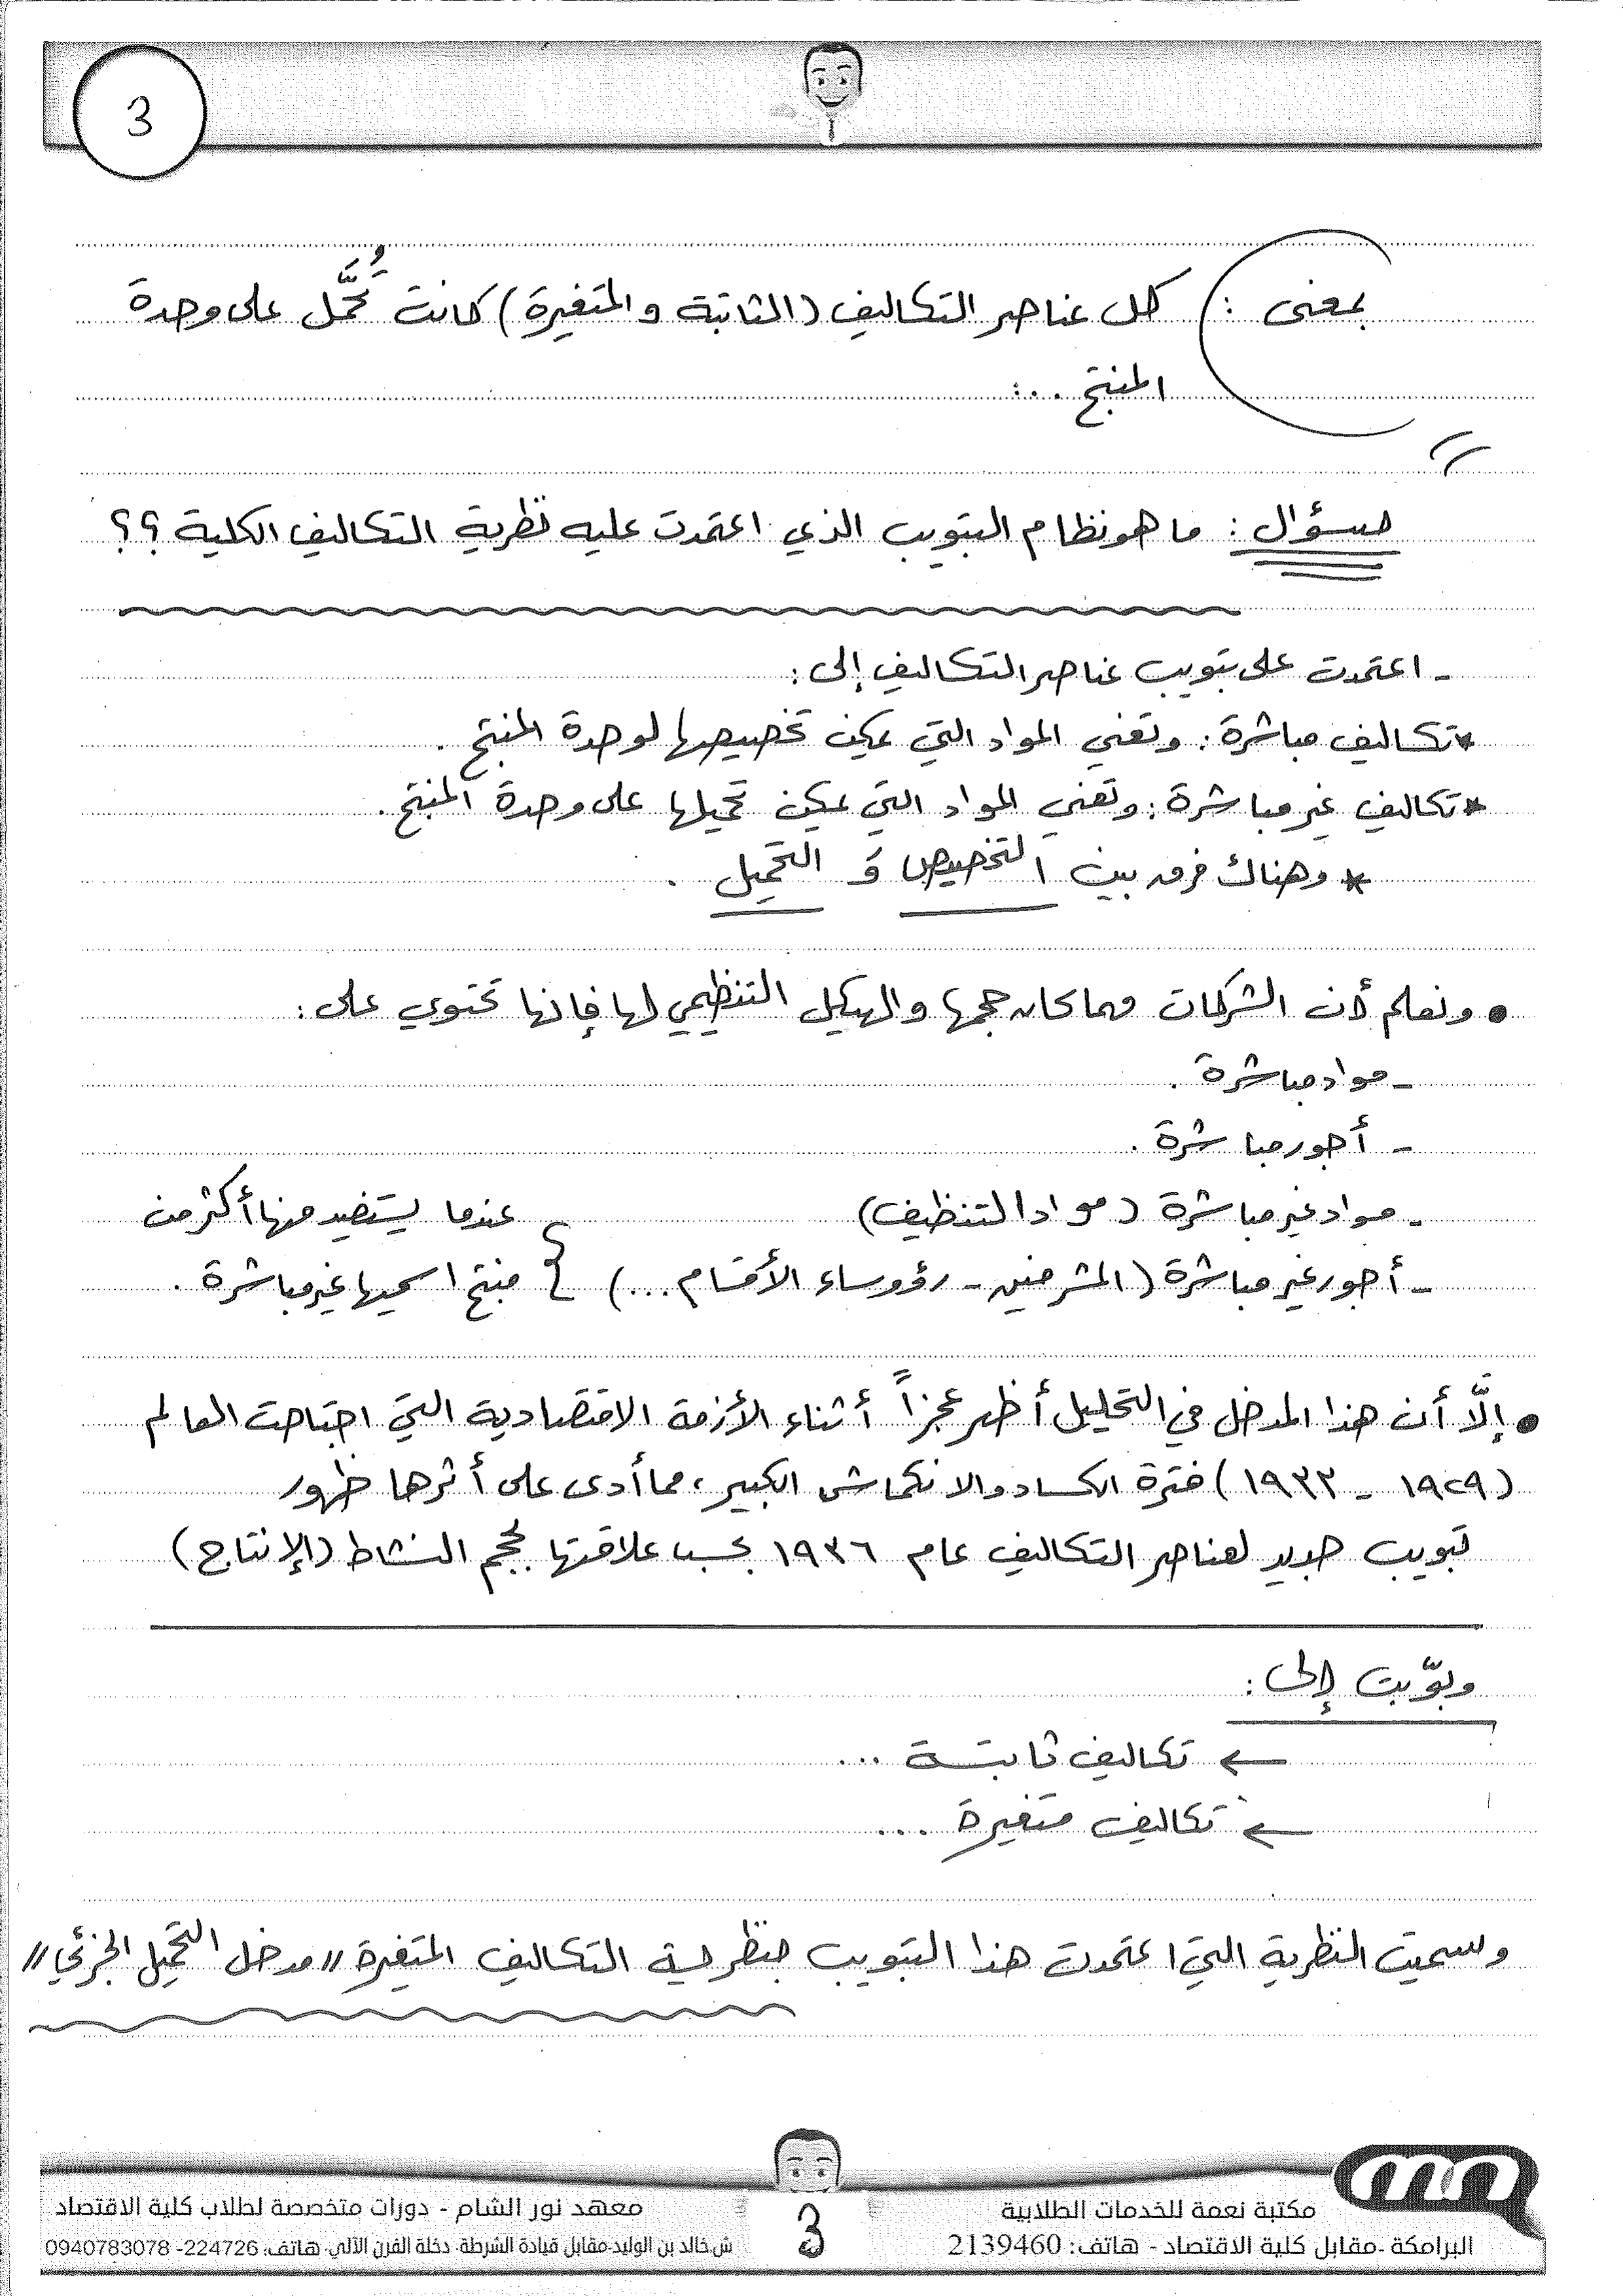 3
بمعنى : كل عناصر التكاليف (الثابتة والمتغيرة) كانت تُحَمَّل على وحدة
المنتج ..:
سؤال : ما هو نظام التبويب الذي اعتمدت عليه نظرية التكاليف الكلية ؟؟
- اعتمدت على تبويب عناصر التكاليف إلى :
* تكاليف مباشرة : وتعني المواد التي يمكن تخصيصها لوحدة المنتج .
* تكاليف غير مباشرة : وتعني المواد التي يمكن تحميلها على وحدة المنتج .
* وهناك فرق بين التخصيص وَ التحميل .
• ونعلم أن الشركات مهما كان حجمها والهيكل التنظيمي لها فإنها تحتوي على :
- مواد مباشرة .
- أجور مباشرة .
- مواد غير مباشرة (مواد التنظيف) عندما يستفيد منها أكثر من
- أجور غير مباشرة (المشرفين - رؤوساء الأقسام ...) } منتج اسميها غير مباشرة .
• إلَّا أن هذا المدخل في التحليل أظهر عجزاً أثناء الأزمة الاقتصادية التي اجتاحت العالم
(١٩٢٩ - ١٩٣٣) فترة الكساد والانكماش الكبير ، مما أدى على أثرها ظهور
تبويب جديد لعناصر التكاليف عام ١٩٣٦ بحسب علاقتها بحجم النشاط (الإنتاج)
وبوّبت إلى :
← تكاليف ثابتة ...
← تكاليف متغيرة ...
وسميت النظرية التي اعتمدت هذا التبويب بنظرية التكاليف المتغيرة // مدخل التحميل الجزئي //
مكتبة نعمة للخدمات الطلابية
البرامكة - مقابل كلية الاقتصاد - هاتف: 2139460
3
معهد نور الشام - دورات متخصصة لطلاب كلية الاقتصاد
ش.خالد بن الوليد-مقابل قيادة الشرطة- دخلة الفرن الآلي- هاتف: 224726- 0940783078